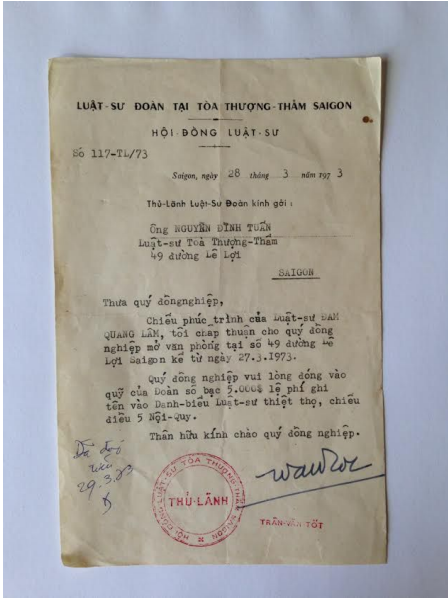 LUẬT-SƯ ĐOÀN TẠI TÒA THƯỢNG-THẨM SAIGON
HỘI-ĐỒNG LUẬT-SƯ
Số 117-TL/73
Saigon, ngày 28 tháng 3 năm 1973
Thủ-Lãnh Luật-Sư Đoàn kính gởi :
Ông NGUYỄN ĐÌNH TUẤN
Luật-sư Toà Thượng-Thẩm
49 đường Lê Lợi
SAIGON
Thưa quý đồngnghiệp,
Chiếu phúc trình của Luật-sư ĐÀM
QUANG LÂM, tôi chấp thuận cho quý đồng
nghiệp mở văn phòng tại số 49 đường Lê
Lợi Saigon kể từ ngày 27.3.1973.
Quý đồng nghiệp vui lòng đóng vào
quỹ của Đoàn số bạc 5.000$ lệ phí ghi
tên vào Danh-biểu Luật-sư thiệt thọ, chiếu
điều 5 Nội-Quy.
Thân hữu kính chào quý đồng nghiệp.
Đã
29.3.73
HỘI ĐỒNG LUẬT-SƯ TÒA THƯỢNG-THẨM SAIGON
THỦ-LÃNH
TRẦN-VĂN-TỐT